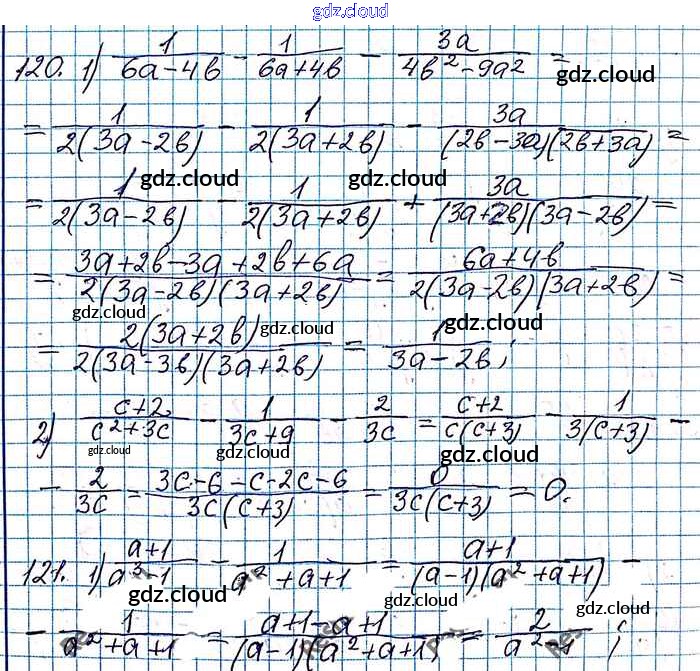 gdz.cloud
120. 1) 1/(6a-4b) - 1/(6a+4b) - 3a/(4b²-9a²) =
gdz.cloud
= 1/(2(3a-2b)) - 1/(2(3a+2b)) - 3a/((2b-3a)(2b+3a)) =
gdz.cloud gdz.cloud
= 1/(2(3a-2b)) - 1/(2(3a+2b)) + 3a/((3a+2b)(3a-2b)) =
= (3a+2b-3a+2b+6a)/(2(3a-2b)(3a+2b)) = (6a+4b)/(2(3a-2b)(3a+2b)) =
gdz.cloud gdz.cloud gdz.cloud
= 2(3a+2b)/(2(3a-3b)(3a+2b)) = 1/(3a-2b);
2) (c+2)/(c²+3c) - 1/(3c+9) - 2/(3c) = (c+2)/(c(c+3)) - 1/(3(c+3)) -
gdz.cloud gdz.cloud
- 2/(3c) = (3c-6-c-2c-6)/(3c(c+3)) = 0/(3c(c+3)) = 0.
gdz.cloud
121. 1) (a+1)/(a³-1) - 1/(a²+a+1) = (a+1)/((a-1)(a²+a+1)) -
gdz.cloud gdz.cloud
- 1/(a²+a+1) = (a+1-a+1)/((a-1)(a²+a+1)) = 2/(a²-1);